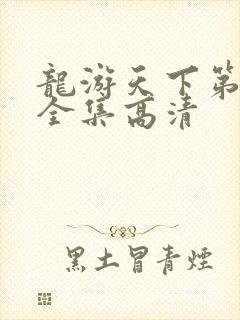 龍游天下第
全集高清
黑土冒青煙